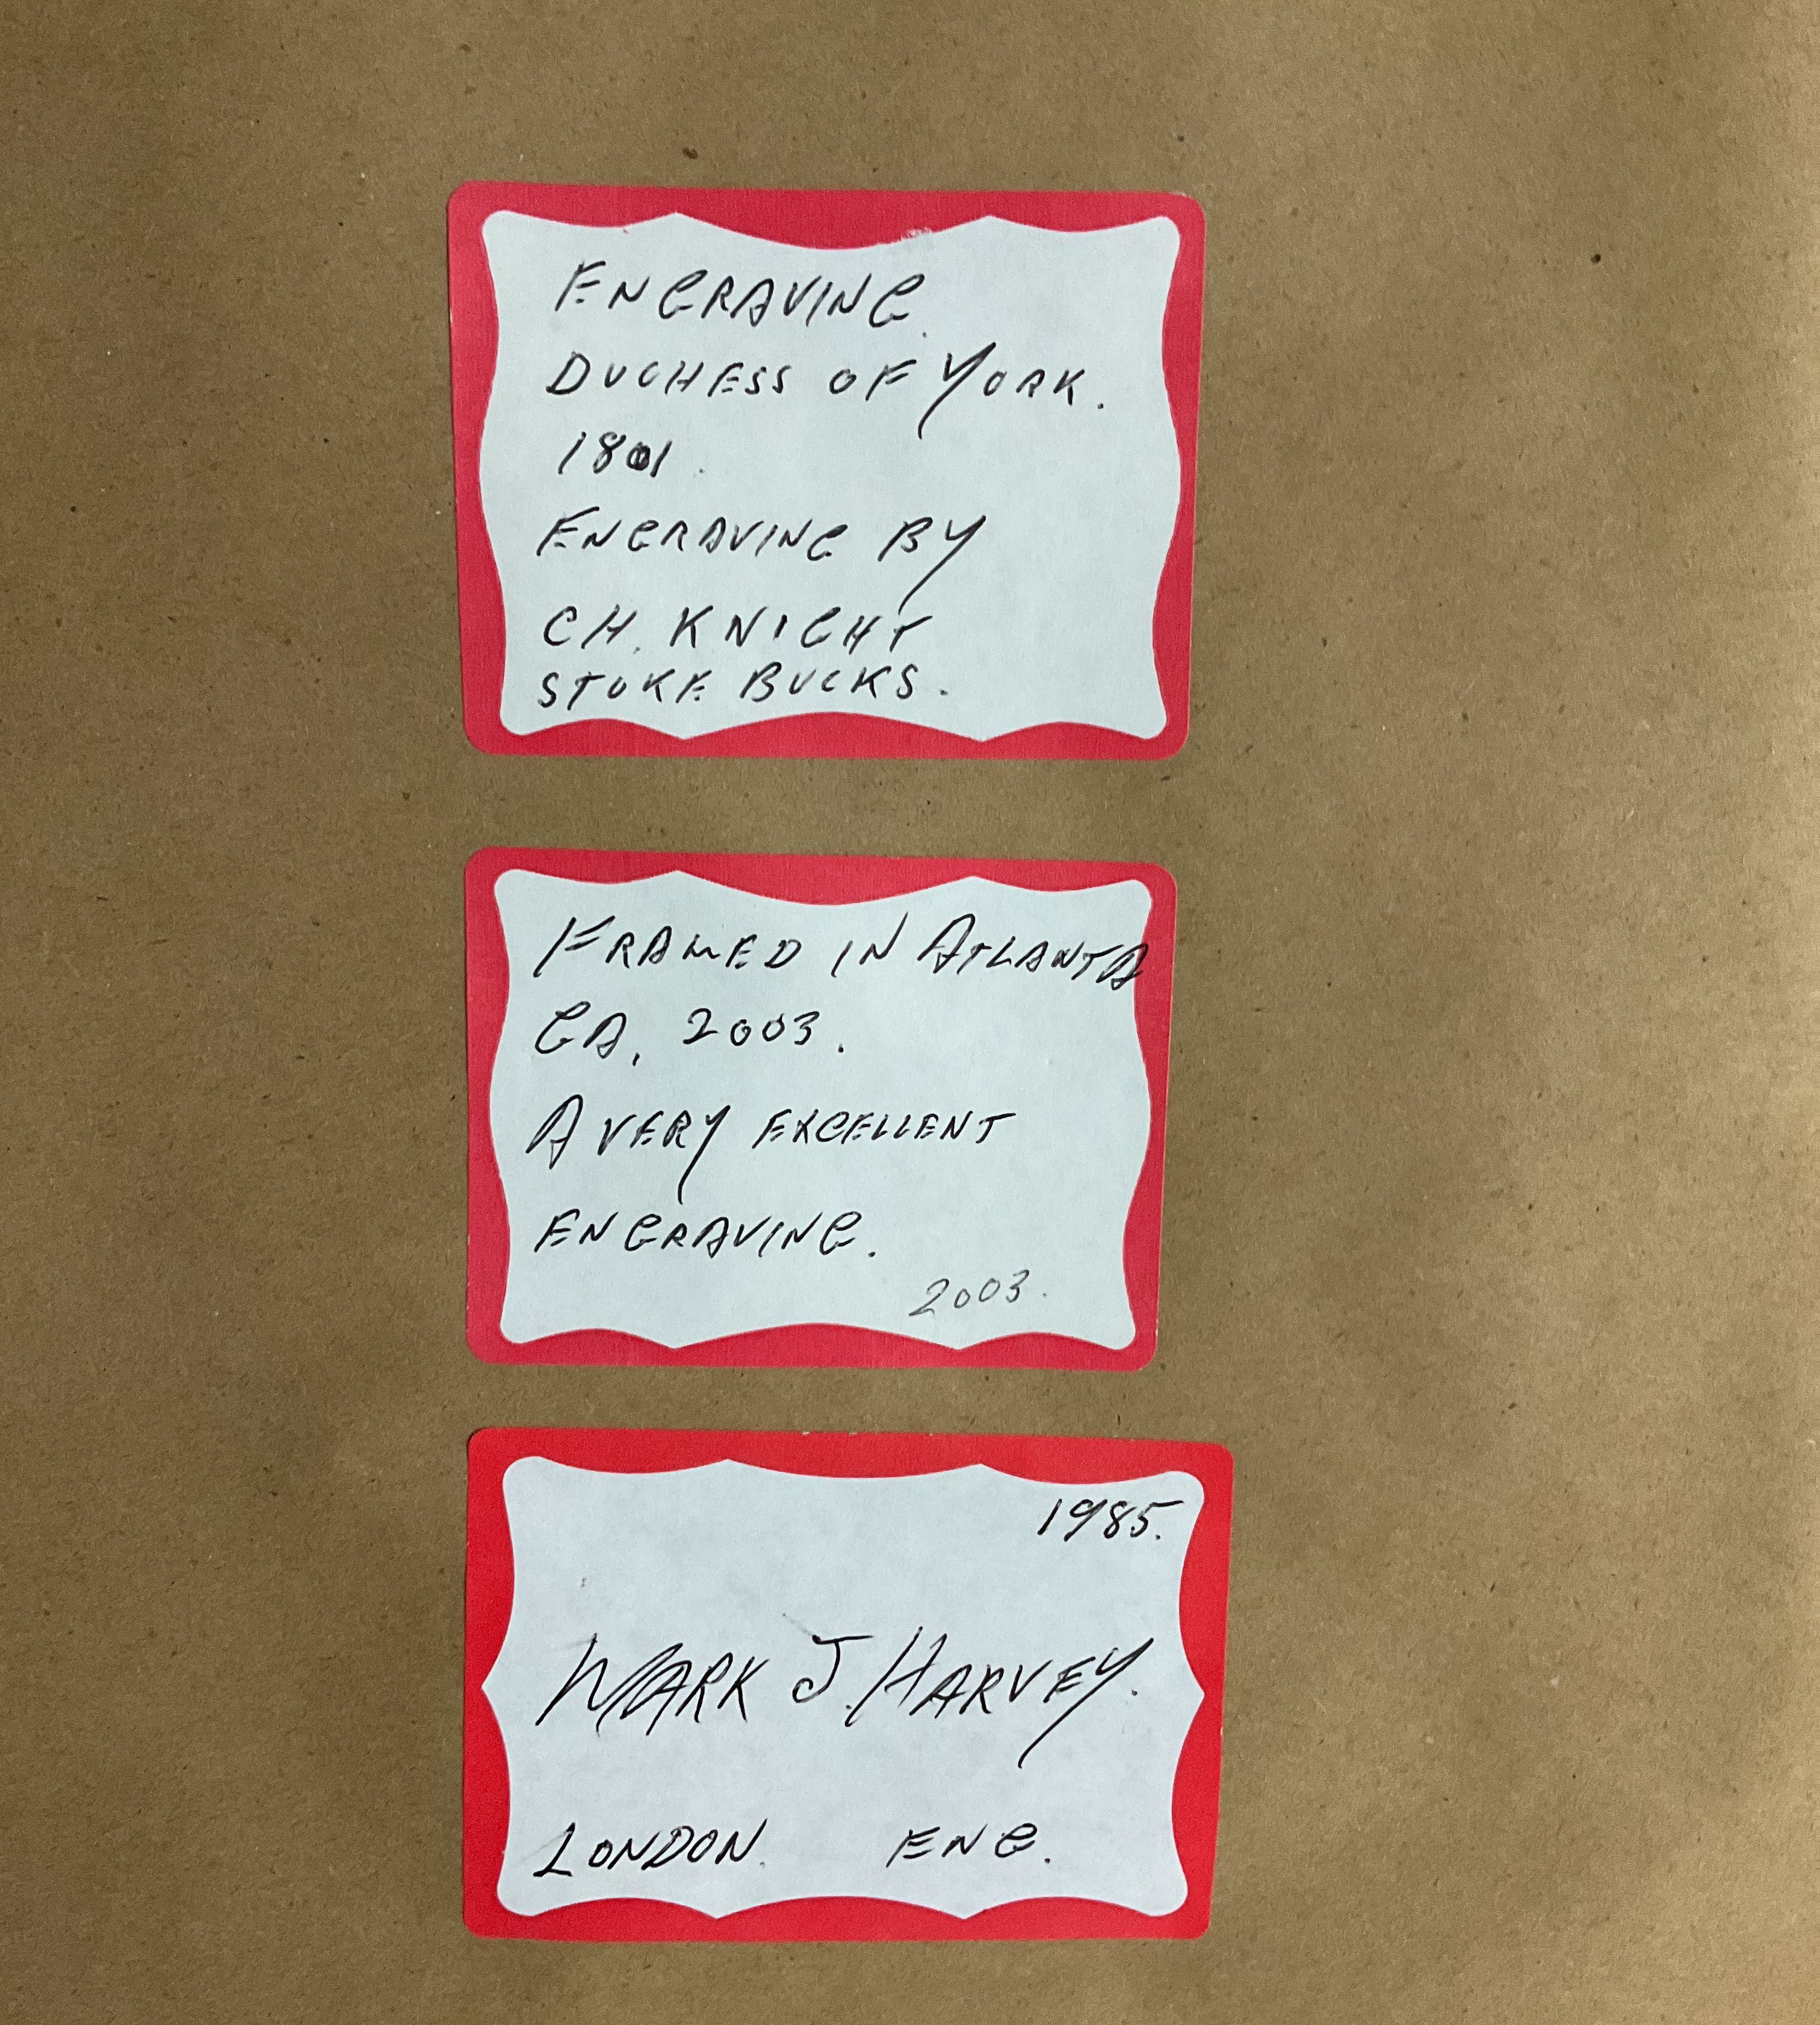 ENGRAVING.
DUCHESS OF YORK.
1801.
ENGRAVING BY
CH. KNIGHT
STOKE BUCKS.
FRAMED IN ATLANTA
GA, 2003.
A VERY EXCELLENT
ENGRAVING.
2003.
1985.
MARK J. HARVEY.
LONDON. ENG.